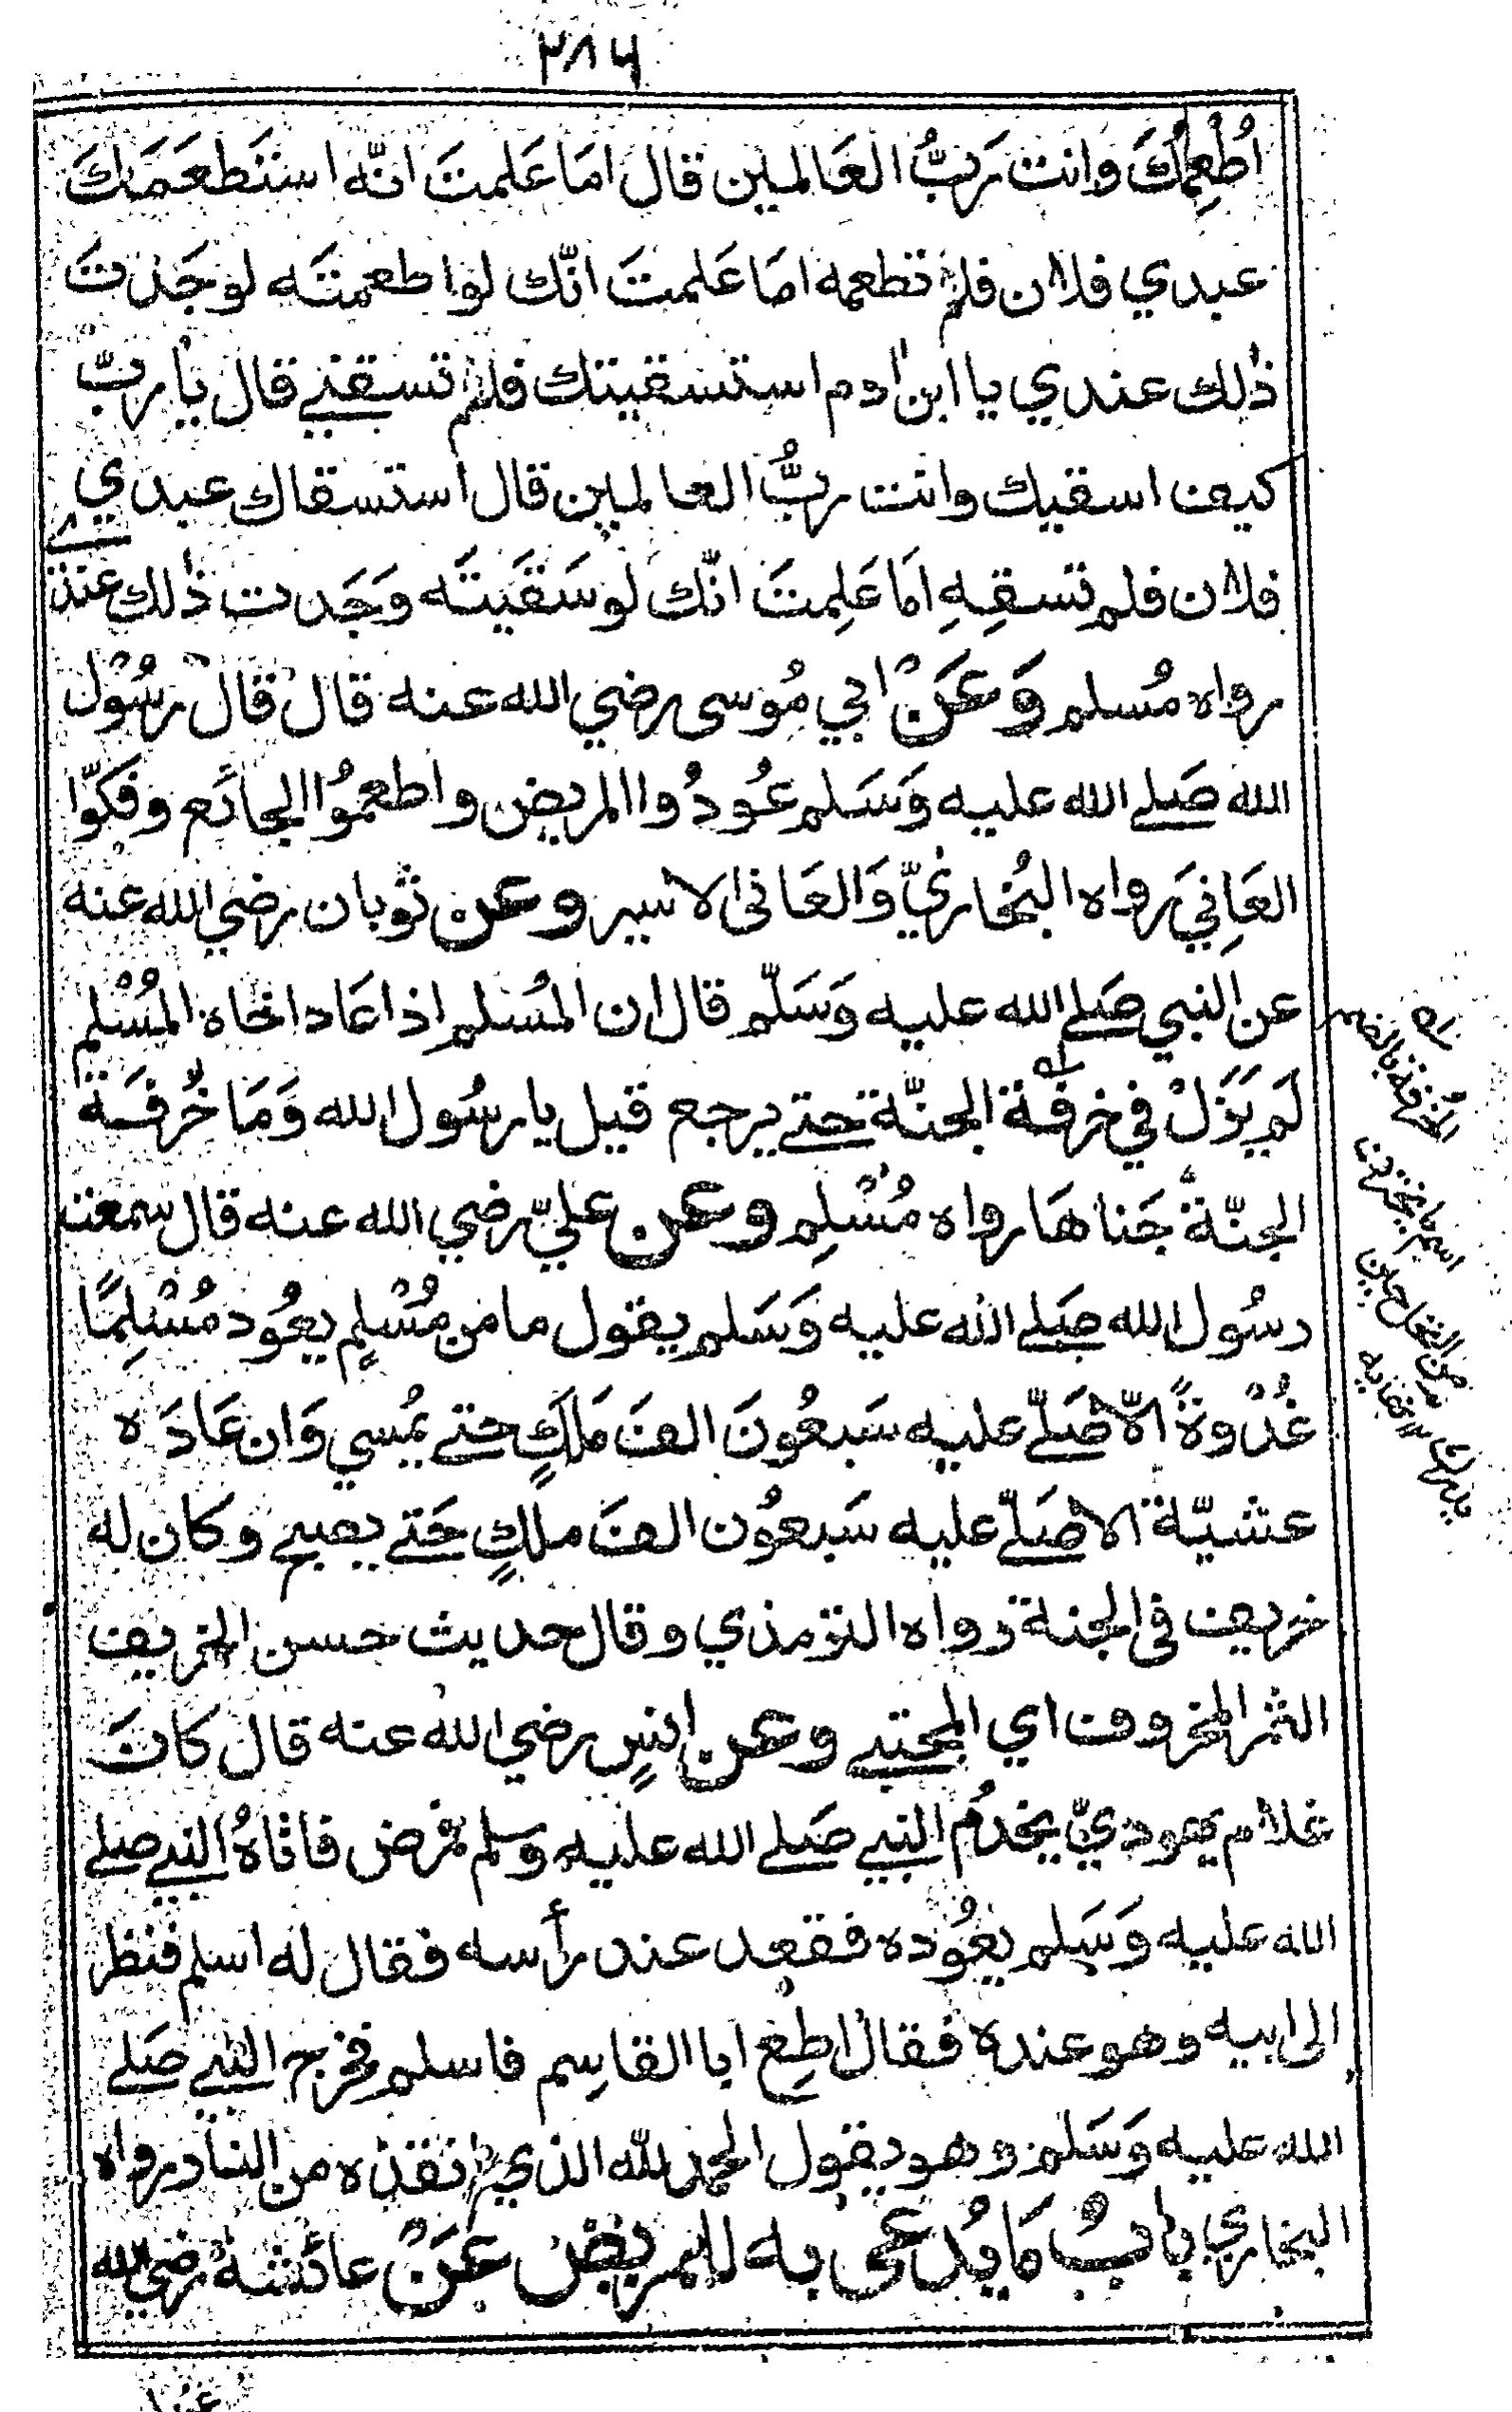 ٢٨٦
اُطْعِمُكَ وانت رَبُّ العَالمين قال امَا عَلمتَ انّه استَطعَمَكَ
عبدي فلان فلم تطعمه امَا عَلمتَ انّك لو اطعمتَه لوجَدتَ
ذٰلك عندي يا ابن اٰدم استسقيتك فلم تسقني قال يا ربّ
كيف اسقيك وانت ربُّ العالمين قال استسقاك عبدي
فلان فلم تسقِهِ امَا عَلِمتَ انّك لو سَقَيتَه وَجَدت ذٰلك عندي
رواه مُسلم وَعَنْ ابي مُوسى رضي الله عنه قال قال رسُوْل
الله صَلى الله عليه وَسَلم عُودُوا المريض واطعمُوا الجائَع وفكوّا
العَانِيَ رواه البُخاريّ وَالعَانى الاسير وعن ثوبان رضي الله عنه
عن النبي صَلى الله عليه وَسَلّم قال ان المُسلم اذا عَاد اخاه المُسْلم
لَم يَزَلْ في خرفَة الجنّة حتى يرجع قيل يا رسُول الله وَمَا خُرفَة
الجنّة جَناهَا رواه مُسْلِم وعن عليّ رضي الله عنه قال سمعت
رسُول الله صَلى الله عليه وَسَلم يقول ما من مُسْلمٍ يعُود مُسْلِمًا
غُدْوةً الّا صَلّى عليه سَبعُونَ الف مَلَكٍ حتى يُمسي وَان عَادَه
عشيّة الا صَلّى عليه سَبعُون الف ملكٍ حَتى يصبح وكان له
خريف في الجنة رواه الترمذي وقال حديث حسن الخريف
الثمر المخروف اي المجتنى وعن انسٍ رضي الله عنه قال كانَ
غلام يهوديّ يخدُم النبي صَلى الله عليه وسلم فمرض فاتاهُ النبي صلى
الله عليه وَسَلم يعُوده فقعد عند رأسه فقال له اسلم فنظر
الى ابيه وهو عنده فقال اطِع ابا القاسِم فاسلم فخرج النبي صَلى
الله عليه وَسَلم وهو يقول الحمد لله الذي انقذه من النار رواه
البخاري بابُ مَا يُدعى به للمريض عَنْ عائشة رضي الله
الخرفة بالضم
اسم ما يخترف
من النخل حين
يدرك نهايه
عنها